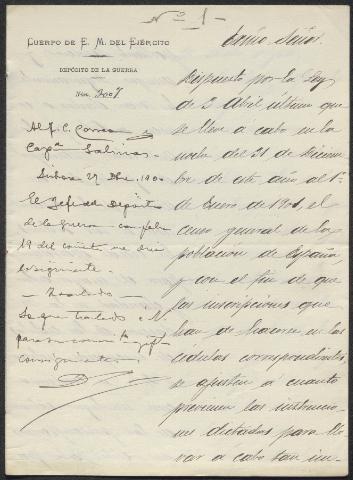 Nº 1
CUERPO DE E. M. DEL EJÉRCITO
DEPÓSITO DE LA GUERRA
Núm. 3007
Al J. C. Correa y
Capn Salinas
27 Dbre 1900
El Jefe del Depósito
de la Guerra con fecha
19 del corrte me dice
lo siguiente
Traslado
Lo que traslado a V
para su conocimto y efectos
consiguientes
Excmo Señor
Dispuesto por la Ley
de 3 Abril último que
se lleve a cabo en la
noche del 31 de Diciem
bre de este año al 1º
de Enero de 1901, el
censo general de la
población de España,
y con el fin de que
las inscripciones que
han de hacerse en las
cédulas correspondientes,
se ajusten a cuanto
previenen las instruccio
nes dictadas para lle
var a cabo tan im-